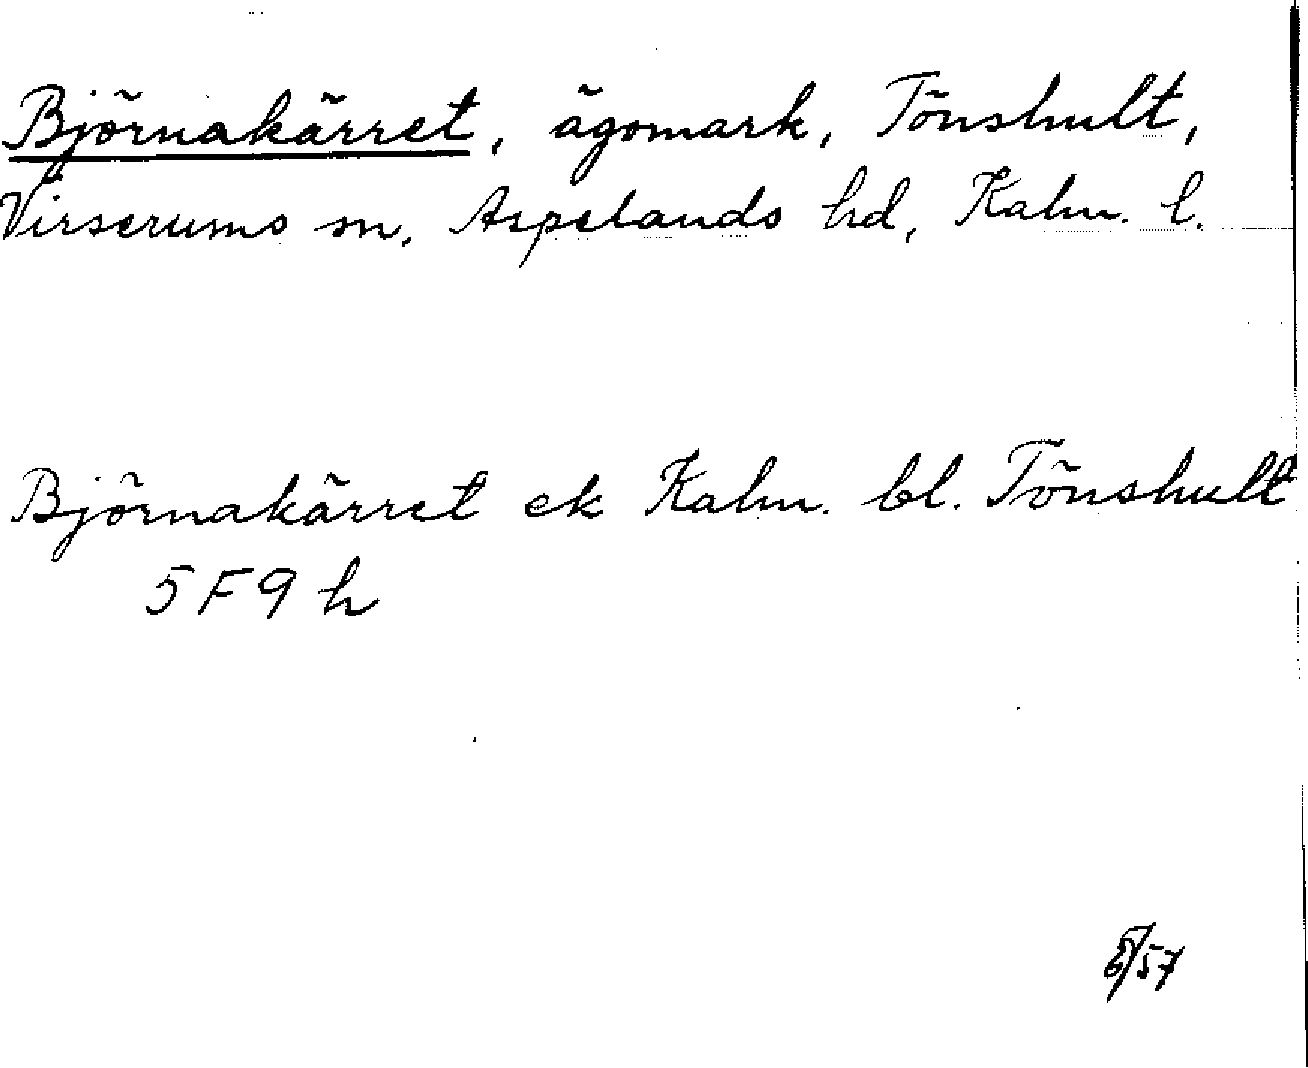 Björnakärret, ägomark, Tönshult,
Virserums sn, Aspelands hd, Kalm. l.
Björnakärret ek Kalm. bl. Tönshult
5F9h